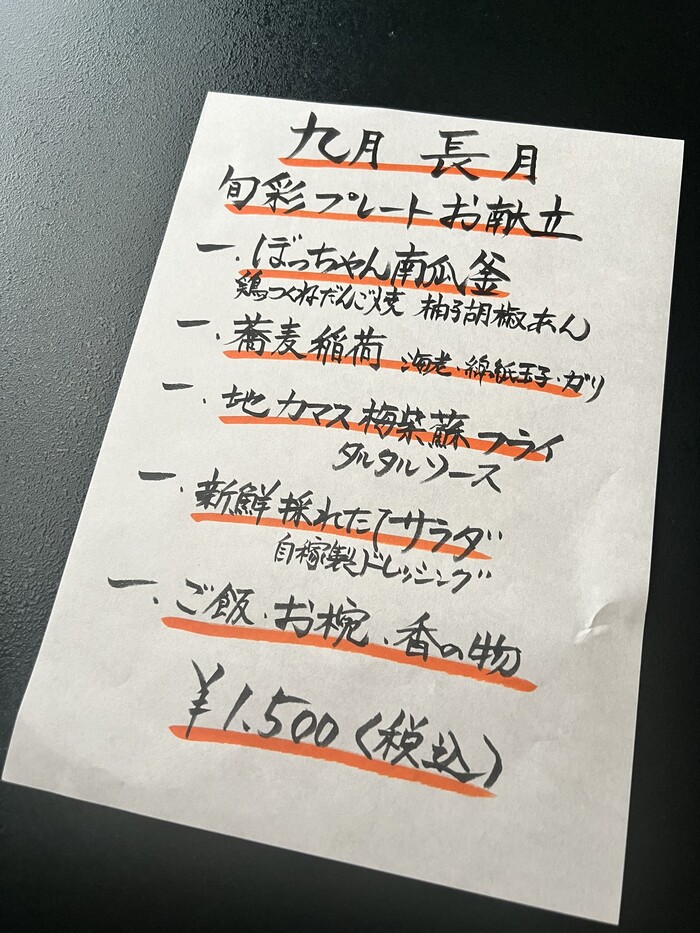 九月 長月
旬彩プレートお献立
一、ぼっちゃん南瓜釜
鶏つくねだんご焼 柚子胡椒あん
一、蕎麦稲荷 海老・錦紙玉子・ガリ
一、地カマス梅柴蘇フライ
タルタルソース
一、新鮮採れたてサラダ
自稼製ドレッシング
一、ご飯、お椀、香の物
¥1.500(税込)